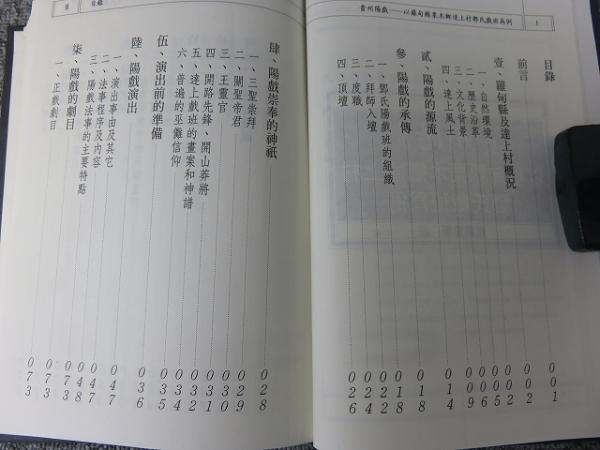 貴州陽戲——以羅甸縣栗木鄉達上村鄧氏戲班為例 I
目錄
前言 001
壹、羅甸縣及達上村概況 002
一、自然環境 002
二、歷史沿革 005
三、文化背景 006
四、達上風土 009
貳、陽戲的源流 014
參、陽戲的承傳 018
一、鄧氏陽戲班的組織 018
二、拜師入壇 022
三、度職 024
四、頂壇 026
II 目錄
肆、陽戲崇奉的神祇 028
一、三聖崇拜 029
二、關聖帝君 030
三、王靈官 031
四、開路先鋒、開山莽將 032
五、達上戲班的畫案和神譜 034
六、普遍的巫儺信仰 035
伍、演出前的準備 036
陸、陽戲演出 047
一、演出事由及其它 047
二、法事程序及內容 048
三、陽戲法事的主要特點 073
柒、陽戲的劇目 073
一、正戲劇目 073